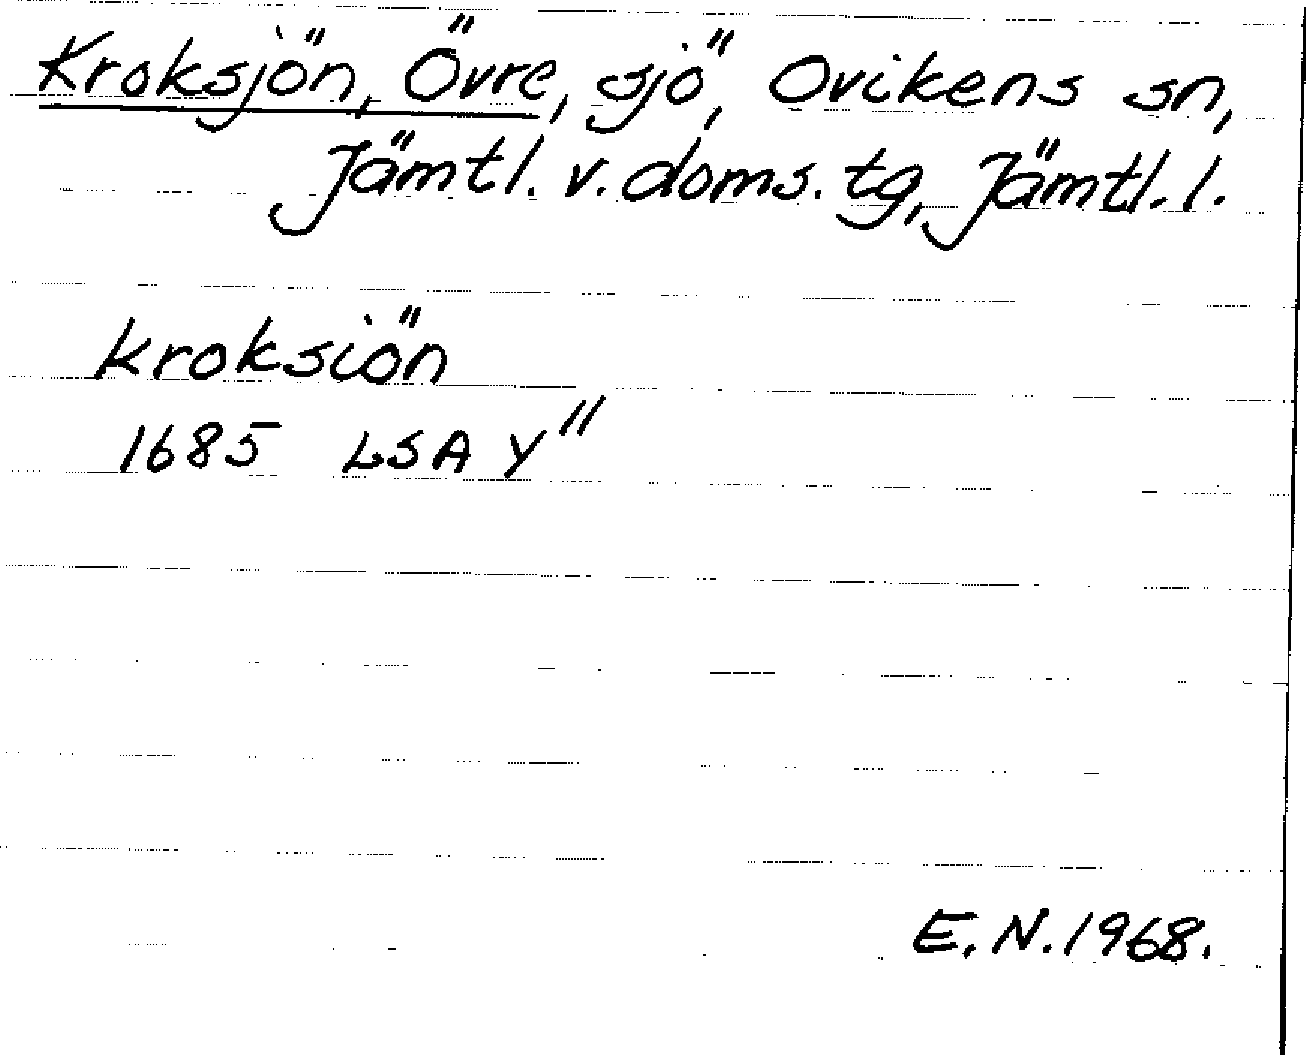 Kroksjön, Övre, sjö, Ovikens sn,
Jämtl. v. doms. tg, Jämtl. l.
kroksiön
1685 LSA Y"
E. N. 1968.